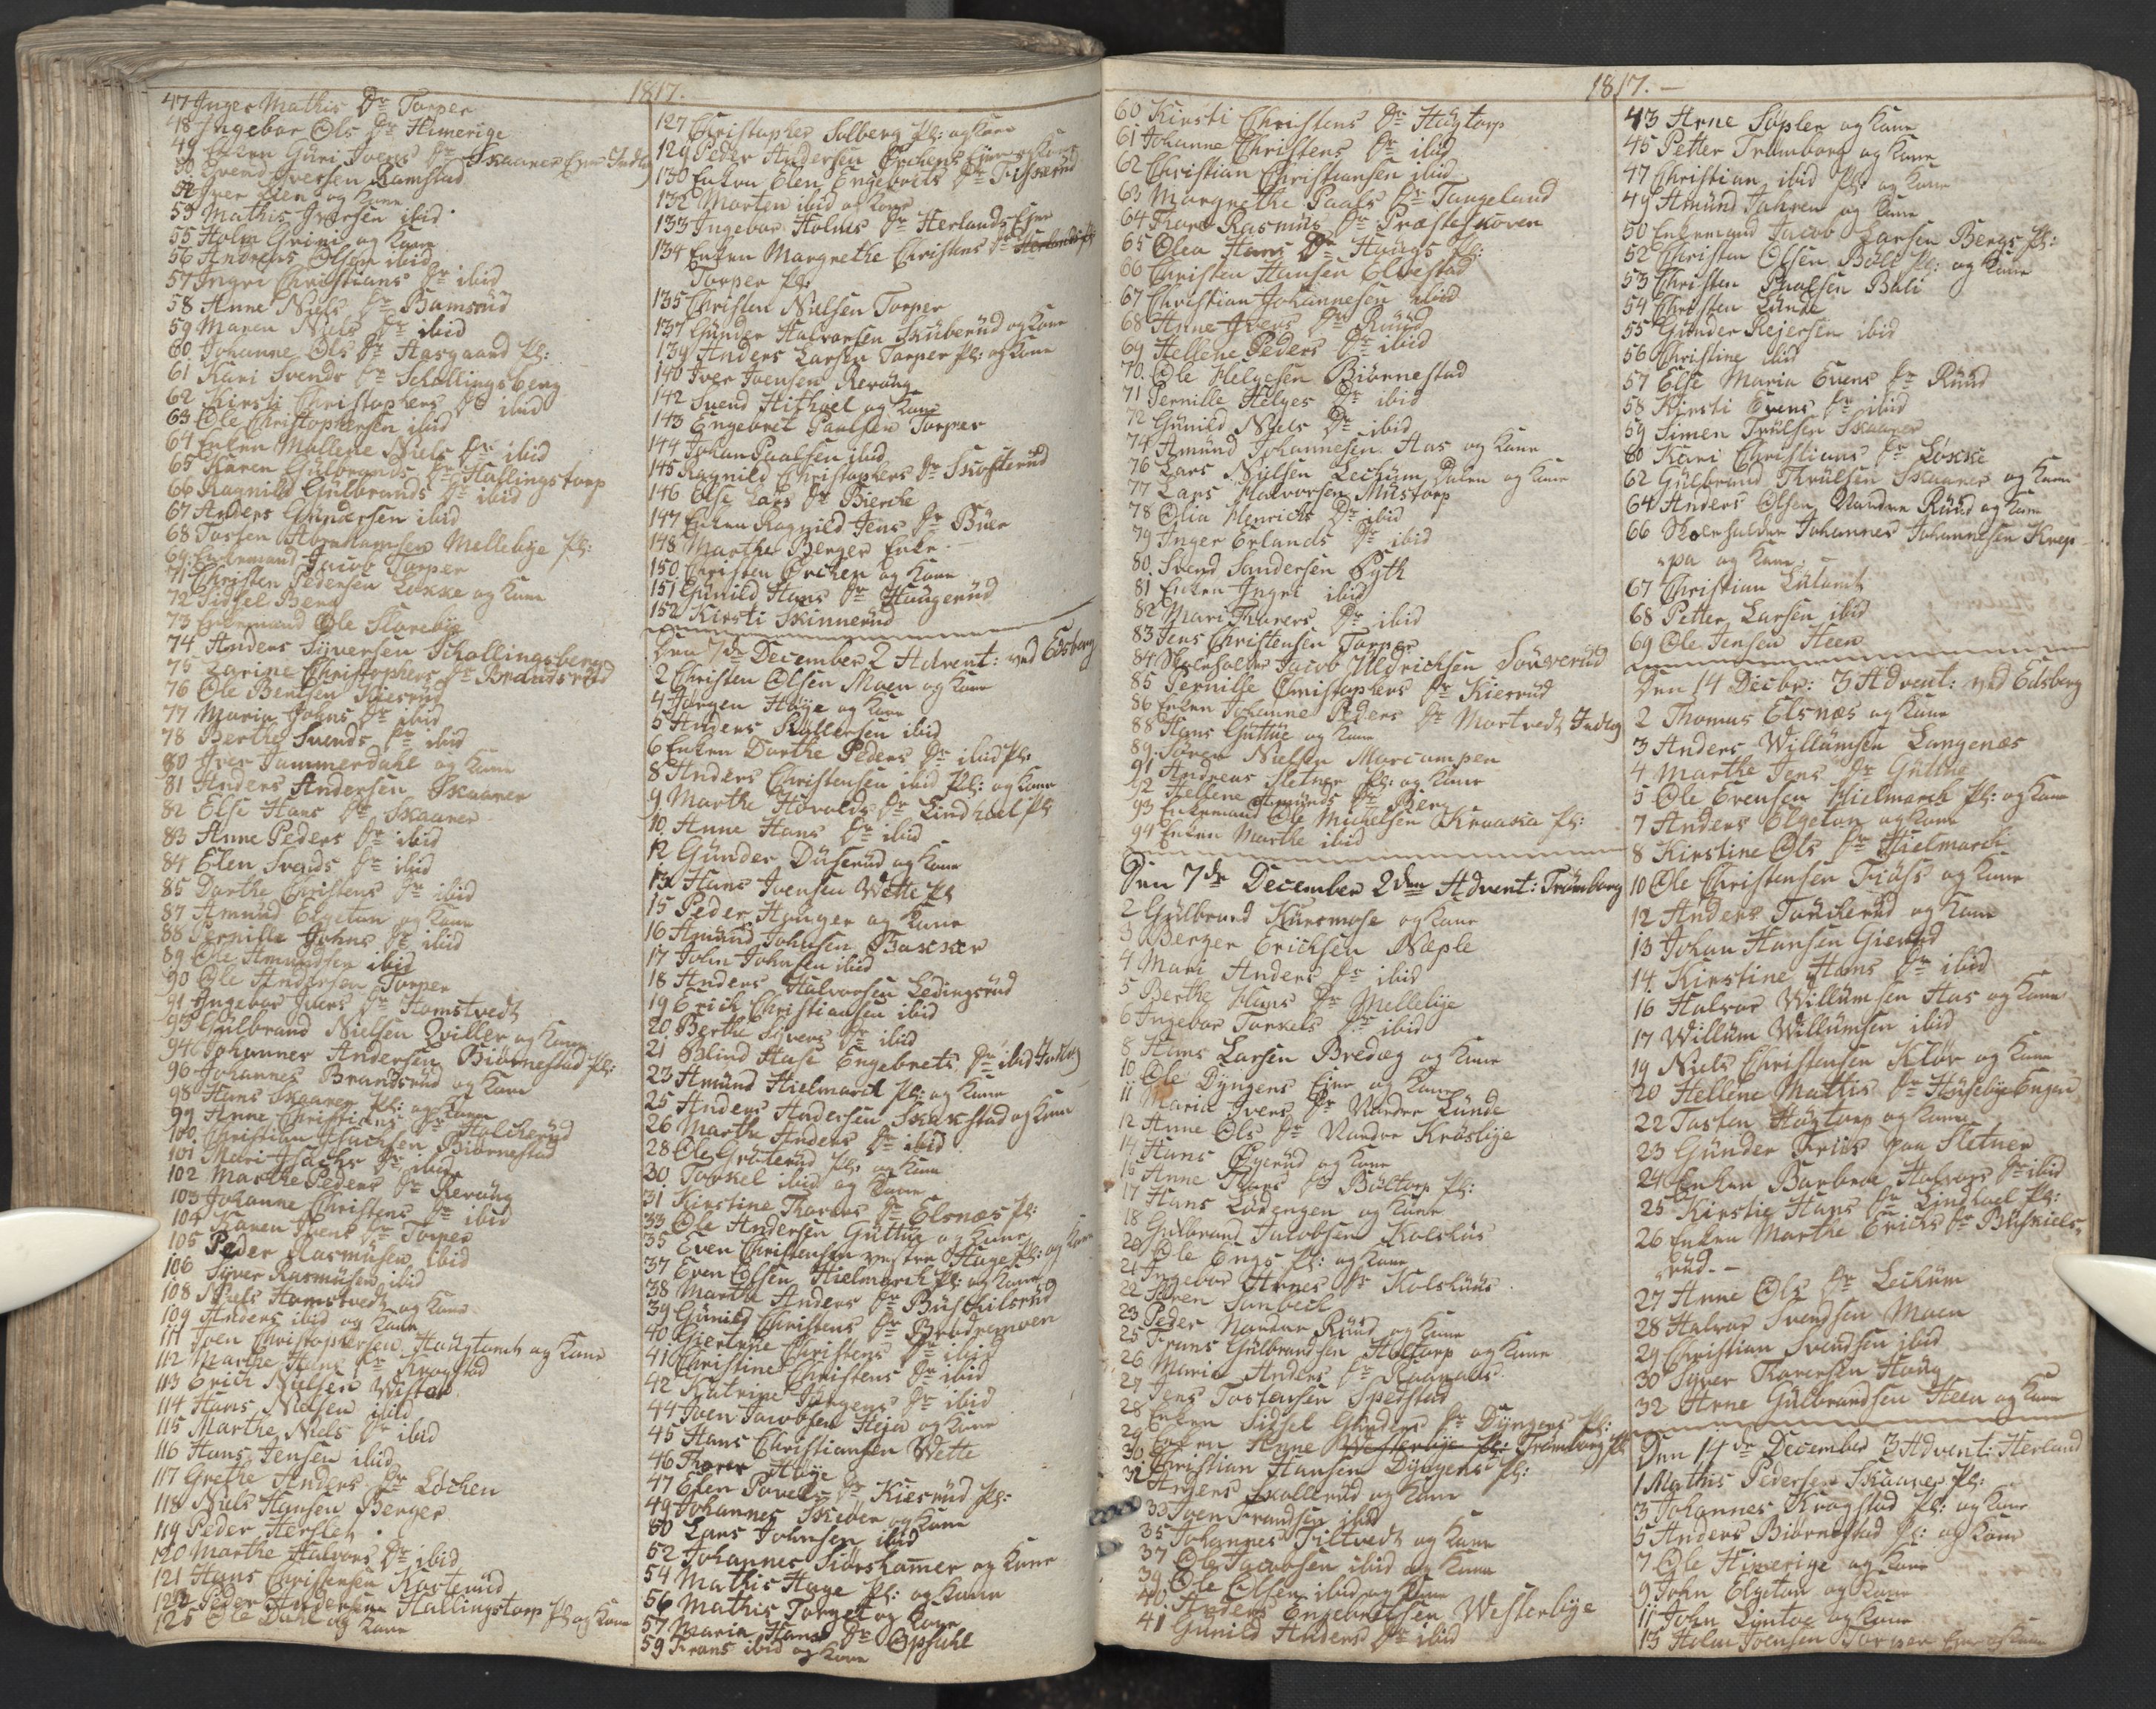 1817.
47 Inger Mathis Dr Torper
48 Ingebor Ols Dr Himerige
49 Enken Guri Joens Dr Skaarer Ejer Indlg
50 Svend Iversen Ramstad
52 Iver Elen og Kone
53 Mathis Iversen ibid
55 Holm Grimi og Kone
56 Andreas Olsen ibid
57 Ingri Christians Dr ibid
58 Anne Niels Dr Bamsrud
59 Maren Niels Dr ibid
60 Johanne Ols Dr Aasgaard Pl:
61 Kari Svends Dr Schollingsberg
62 Kirsti Christophers Dr ibid
63 Ole Christophersen ibid
64 Enken Mallene Niels Dr ibid
65 Karen Gulbrands Dr Hallingstorp
66 Ragnild Gulbrands Dr ibid
67 Anders Gundersen ibid
68 Tosten Abrahamsen Mellebye Pl:
69 Enkemand Jacob Torper
71 Christen Pedersen Løkke og Kone
72 Sidsel Berg
73 Enkemand Ole Slorebye
74 Anders Syversen Schollingsberg
75 Zarine Christophers Dr Brandsrud
76 Ole Bentsen Kiesrud
77 Maria Johns Dr ibid
78 Berthe Svends Dr ibid
80 Iver Jammerdahl og Kone
81 Anders Andersen Skaarer
82 Else Hans Dr Skaarer
83 Anne Peders Dr ibid
84 Elen Svends Dr ibid
85 Dorthe Christens Dr ibid
87 Amund Elgeton og Kone
88 Pernille Johns Dr ibid
89 Ole Amundsen ibid
90 Ole Andersen Torper
91 Ingebor Ivers Dr Homstvedt
93 Gulbrand Nielsen Qviller og Kone
94 Johannes Andersen Biørnestad Pl:
96 Johannes Brandsrud og Kone
98 Hans Skaarer Pl: og Kone
99 Anne Christians Dr Holckerud
100 Christian Isachsen Biørnestad
101 Mari Isachs Dr ibid
102 Marthe Peders Dr Revoug
103 Johanne Christens Dr ibid
104 Karen Ivers Dr Torper
105 Peder Rasmusen ibid
106 Syver Rasmusen ibid
108 Niels Homstvedt og Kone
109 Anders ibid og Kone
111 Joen Christophersen Haugtomt og Kone
112 Marthe Hans Dr Krogstad
113 Erich Nielsen Wister
114 Hans Nielsen ibid
115 Marthe Niels Dr ibid
116 Hans Jensen ibid
117 Grethe Anders Dr Løchen
118 Niels Hansen Berger
119 Peder Herslet
120 Marthe Halvors Dr ibid
121 Hans Christensen Kosterud
123 Peder Andersen Hallingstorp Pl og Kone
125 Ole Dahl og Kone
127 Christopher Solberg Pl: og Kone
129 Peder Andersen Ørchens Ejer og Kone
130 Enken Elen Engebrets Dr Fiskerud
132 Morten ibid og Kone
133 Ingebor Holms Dr Herlands Ejer
134 Enken Margrethe Christens Dr Herlands Ej
Torper Pl:
135 Christen Nielsen Torper
137 Gunder Halvorsen Skuberud og Kone
139 Anders Larsen Torper Pl: og Kone
140 Iver Joensen Revoug
142 Svend Hithoel og Kone
143 Engebret Paulsen Torper
144 Johan Paalsen ibid
145 Ragnild Christophers Dr Skofterud
146 Else Lars Dr Biercke
147 Enken Ragnild Jens Dr Buer
148 Marthe Berger Enke
150 Christen Ørchen og Kone
151 Gunild Hans Dr Haugerud
152 Kirsti Skinnerud
Den 7de December 2 Advent: ved Edsberg
2 Christen Olsen Moen og Kone
4 Jørgen Høije og Kone
5 Anders Kullersen ibid
6 Enken Dorthe Peders Dr ibid Pl:
8 Anders Christensen ibid Pl: og Kone
9 Marthe Hovalds Dr Lindhoel Pl
10 Anne Hans Dr ibid
12 Gunder Duserud og Kone
13 Hans Ivensen Wette Pl
15 Peder Hauger og Kone
16 Amund Johnsen Bakker
17 John Johnsen ibid
18 Anders Halvorsen Ledingsrud
19 Erich Christiansen ibid
20 Berthe Syvers Dr ibid
21 Blind Aase Engebrets Dr ibid Indlg
23 Amund Hielmarck Pl: og Kone
25 Anders Andersen Skakstad og Kone
26 Marthe Anders Dr ibid
28 Ole Grøterud Pl: og Kone
30 Torkel ibid og Kone
31 Kirstine Thorers Dr Elsnæs Pl:
33 Ole Andersen Guttue og Kone
35 Even Christensen vestre Hage Pl: og Kone
37 Even Olsen Hielmarch Pl: og Kone
38 Marthe Anders Dr Buskilsrud
39 Gunild Christens Dr Brødremoen
40 Giertrue Christens Dr ibid
41 Christine Christens Dr ibid
42 Katrine Jørgens Dr ibid
44 Joen Jacobsen Heja og Kone
45 Hans Christiansen Wette
46 Thorer Høije
47 Elen Povels Dr Kiesrud Pl:
49 Johannes Skeber og Kone
50 Lars Johnsen ibid
52 Johannes Siørshamer og Kone
54 Mathis Hage Pl: og Kone
56 Mathis Torget og Kone
57 Maria Hans Dr Opsahl
59 Frans ibid og Kone
1817.
60 Kirsti Christens Dr Hugtorp
61 Johanne Christens Dr ibid
62 Christian Christiansen ibid
63 Margrethe Paals Dr Tangeland
64 Thore Rasmus Dr Præsteskoven
65 Olea Hans Dr Haugs Pl:
66 Christen Hansen Elvestad
67 Christian Johannesen ibid
68 Anne Ivers Dr Ruud
69 Hellene Peders Dr ibid
70 Ole Helgesen Biørnestad
71 Pernille Helges Dr ibid
72 Gunild Niels Dr ibid
74 Amund Johannesen Aas og Kone
76 Lars Nielsen Lechum Dalen og Kone
77 Lars Halvorsen Mustorp
78 Olia Henrichs Dr ibid
79 Inger Erlands Dr ibid
80 Svend Sandersen Fyth
81 Enken Ingri ibid
82 Mari Thorers Dr ibid
83 Jens Christensen Torper
84 Skoeholder Jacob Uldrichsen Souverud
85 Pernille Christophers Dr Kiesrud
86 Enken Johanne Peders Dr Mortvedt Indlg
88 Hans Guttue og Kone
89 Søren Nielsen Morcumpen
91 Andreas Sletner Pl: og Kone
92 Hellene Amunds Dr Berg
93 Enkemand Ole Michelsen Kraakia Pl:
94 Enken Marthe ibid
Den 7de December 2den Advent: Trømborg
2 Gulbrand Kursmose og Kone
3 Berger Erichsen Neple
4 Mari Anders Dr ibid
5 Berthe Hans Dr Mellebye
6 Ingebor Torkels Dr ibid
8 Hans Larsen Bredeg og Kone
10 Ole Dyngens Ejer og Kone
11 Maria Ivers Dr Nordre Lunde
12 Anne Ols Dr Nordre Krosbye
14 Hans Øyerud og Kone
15 Anne Thors Dr Boltorp Pl:
17 Hans Lødengen og Kone
18 Gulbrand Jacobsen Kolshus
20 Ole Engs Pl: og Kone
21 Ingebor Arnes Dr Kolshuus
22 Søren Sanbech
23 Peder Nordre Ruud og Kone
25 Frans Gulbrandsen Holtorp og Kone
26 Maria Anders Dr Kaaraas
27 Jens Tostensen Spetstad
28 Enken Sidsel Gunders Dr Dyngens Pl:
29 Enken Anne Westerbye Pl: Trømborg Pl
30 Christian Hansen Dyngens Pl:
32 Anders Skollerud og Kone
33 Joen Frandsen ibid
35 Johannes Tiltvedt og Kone
37 Ole Jacobsen ibid og Kone
39 Ole Olsen ibid og Kone
40 Anders Engebretsen Westerbye
41 Gunild Anders Dr ibid
43 Arne Sopler og Kone
45 Petter Tromborg og Kone
47 Christian ibid Pl: og Kone
49 Amund Jahren og Kone
50 Enkemand Jacob Larsen Bergs Pl:
52 Christen Olsen Boli Pl: og Kone
53 Christen Paalsen Buli
54 Christen Lunde
55 Gunder Rejersen ibid
56 Christine ibid
57 Else Maria Evens Dr Ruud
58 Kirsti Evens Dr ibid
59 Simen Trulsen Skaarer
60 Kari Christians Dr Løkke
62 Gulbrand Thrulsen Skaarer og Kone
64 Anders Olsen Nordre Ruud og Kone
66 Skoeholder Johannes Johannesen Krep-
pa og Kone
67 Christian Lulamt
68 Petter Larsen ibid
69 Ole Jensen Heen
Den 14 Decbr: 3 Advent: ved Edsberg
2 Thomas Elsnæs og Kone
3 Anders Willumsen Langenæs
4 Marthe Jens Dr Guttue
5 Ole Evensen Hielmarck Pl: og Kone
7 Anders Elgeton og Kone
8 Kirstine Ols Dr Hielmarch
10 Ole Christensen Fiøss og Kone
12 Anders Touckerud og Kone
13 Johan Hansen Gierud
14 Kirstine Hans Dr ibid
16 Halvor Willumsen Aas og Kone
17 Willum Willumsen ibid
19 Niels Christensen Kløv og Kone
20 Hellene Mathis Dr Huseby Engen
22 Tosten Høytorp og Kone
23 Gunder Friis paa Sletner
24 Enken Barbroe Halvors Dr ibid
25 Kirstie Hans Dr Lindhoel Pl:
26 Enken Marthe Erichs Dr Buskiels-
rud.-
27 Anne Ols Dr Lechum
28 Halvor Svendsen Moen
29 Christian Svendsen ibid
30 Syver Thorersen Haug
32 Arne Gulbrandsen Heen og Kone
Den 14de December 3 Advent: Herland
1 Mathis Pedersen Skaarer Pl:
3 Johannes Krogstad Pl: og Kone
5 Anders Biørnestad Pl: og Kone
7 Ole Himerige og Kone
9 John Elgeton og Kone
11 John Lintoe og Kone
13 Holm Joensen Torper Ejer og Kone